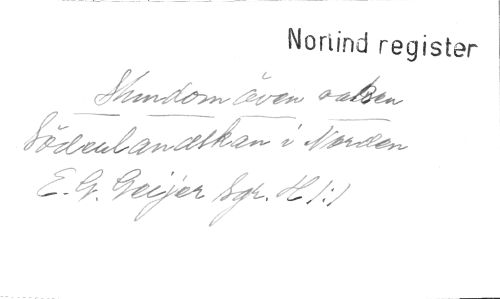 Norlind register
Stundom även valsen
Söderlandskan i Norden
E. G. Geijer Sgr. H 1:1